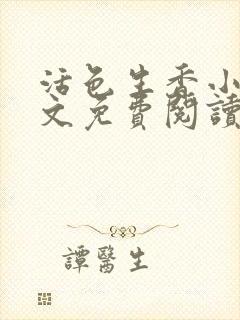 活色生香小
文免費閱讀
譚醫生